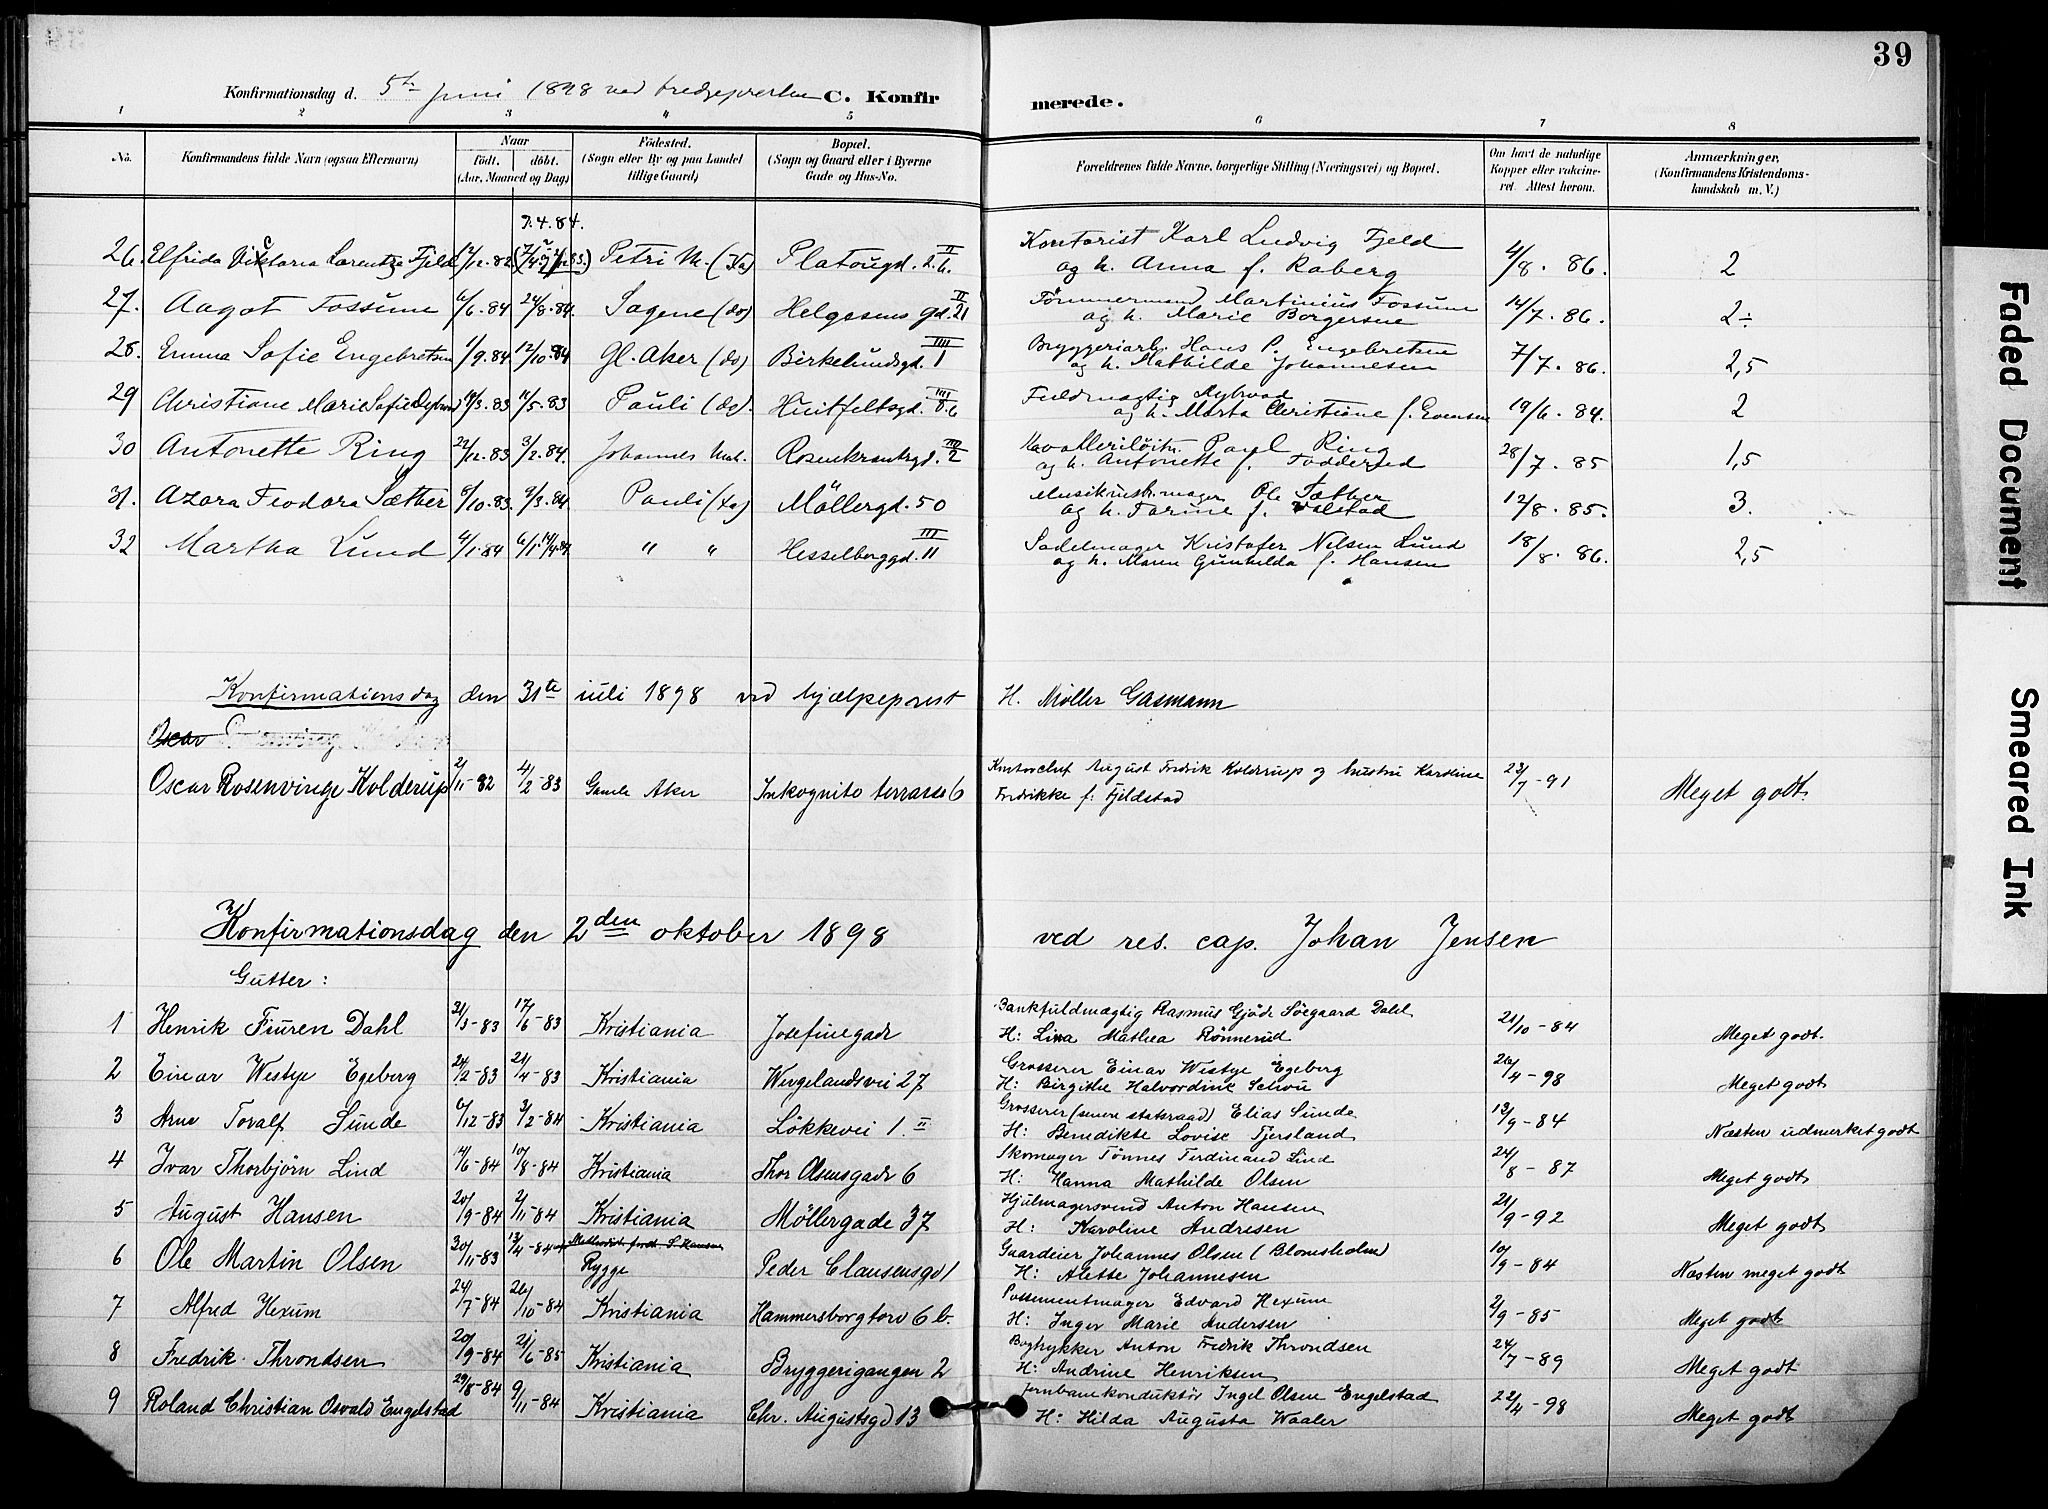 39
Konfirmationsdag d. 5te juni 1898 ved C. Konfirmerede.
1 2 3 4 5 6 7 8
No. Konfirmandens fulde Navn (ogsaa Efternavn) Naar født. døbt. (Aar, Maaned og Dag) Fødested. (Sogn eller By og paa Landet tillige Gaard) Bopæl. (Sogn og Gaard eller i Byerne Gade og Hus-No. Forældrenes fulde Navne, borgerlige Stilling (Næringsvei) og Bopæl. Om havt de naturlige Kopper eller vakcineret. Attest herom. Anmærkninger, (Konfirmandens Kristendomskundskab m. V.)
7.4.84.
26. Elfrida Victoria Larentze Fjeld 12/12.82 Petri M. (Ka) Platougd. 2.b. II Kontorist Karl Ludvig Fjeld 4/8. 86. 2
og h. Anna f. Raberg
27. Aagot Fossume 6/6.84 24/8.84. Sagene (do) Helgesens gd. 21 II Tømmermand Martinius Fossume 14/7. 86. 2÷
og h. Marie Borgersene
28. Emma Sofie Engebretsen 1/9.84 12/10.84 Gl. Aker (do) Birkelundsgd. 1 IIII Bryggeriarb. Hans P. Engebretsen 7/7. 86. 2,5
og h. Mathilde Johannesen
29 Christiane Marie Sofie 14/3.83 11/5.83 Pauli (do). Huitfeltsgd. 8.b IIII Fuldmægtig 19/6. 84. 2
og h. Marta Christiane f. Evensen
30 Antonette Ring 22/12.83 3/2.84. Johannes Mat. Rosenkrantzgd. 2 III Kavallerilöitn. Paul Ring 28/7. 85 1,5
og h. Antonette f. Foddersed
31. Azora Feodora Sæther 6/10.83. 9/3.84 Pauli (Ka) Möllergd. 50 Musikinstr.mager Ole Sæther 12/8. 85. 3.
og h. Farine f. Valstad
32 Martha Lund 4/1.84 6/1 14/4.84 " " Hesselberggd. 11 III Sadelmager Kristofer Nilsen Lund 18/8. 86. 2,5
og h. Maren Gunhilda f. Hansen
Konfirmationsdag den 31te juli 1898 ved hjælpeprest H. Møller Gasmann
Oscar
Oscar Rosenvinge Kolderup 2/11-82 4/2-83 Gamle Aker Inkognito terrasse 6 Kontorchef August Fredrik Kolderup og hustru Karoline 23/7-91 Meget godt.
Fredrikke f. Fjeldstad
Konfirmationsdag den 2den oktober 1898 ved res. cap. Johan Jensen
Gutter:
1 Henrik Fiuren Dahl 31/3-83 17/6-83 Kristiania Josefinegade Bankfuldmægtig Rasmus Gjöde Söegaard Dahl 21/10-84 Meget godt.
H: Lina Mathea Rønnerud
2 Einar Westye Egeberg 24/2-83 21/4-83 Kristiania Wergelandsvei 27 Grosserer Einar Westye Egeberg 26/4-98 Meget godt
H: Birgithe Halvordine Schou
3 Arne Toralf Sunde 6/12-83 3/2-84 Kristiania Lökkevei 1. II Grosserer (senere statsraad) Elias Sunde 13/9-84 Næsten udmerket godt
H: Benedikte Lovise Fjersland
4 Ivar Thorbjörn Lind 14/6-84 10/8-84 Kristiania Thor Olsensgade 6 Skomager Tönnes Ferdinand Lind 24/8-87 Meget godt
H: Hanna Mathilde Olsen
5 August Hansen 20/9-84 2/11-84 Kristiania Möllergade 37 Hjulmagersvend Anton Hansen 21/9-92 Meget godt
H: Karoline Andresen
6 Ole Martin Olsen 30/11-83 13/4-84 Rygge Peder Clausensgd 1 Gaardeier Johannes Olsen (Blomsholm) 10/9-84 Næsten meget godt
H: Alette Johannesen
7 Alfred Hexum 24/7-84 26/10-84 Kristiania Hammersborgtorv 6 b. Possementmager Edvard Hexum 2/9-85 Meget godt
H: Inger Marie Andersen
8 Fredrik Throndsen 20/9-84 21/6-85 Kristiania Bryggerigangen 2 Bogtrykker Anton Fredrik Throndsen 24/7-89 Meget godt
H: Andrine Henriksen
9 Roland Christian Osvald Engelstad 29/8-84 9/11-84 Kristiania Chr. Augustsgd 13 Jernbanekonduktör Ingel Olsen Engelstad 22/4-98 Meget godt
H: Hilda Augusta Waaler
Faded Document
Smeared Ink